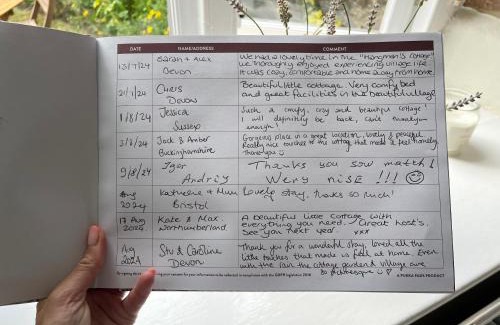 DATE NAME/ADDRESS COMMENT
13/7/24 Sarah + Alex
Devon
We had a lovely time in the "Hangman's cottage"
we thoroughly enjoyed experiencing village life
it was cosy, comfortable and home away from home.
Chris
Devon
Beautiful little cottage. Very comfy bed
and great facilities in the beautiful village
1/8/24 Jessica
Sussex
Such a comfy, cosy and beautiful cottage!
I will definitely be back, can't
enough!
3/8/24 Jack & Amber
Buckinghamshire
Gorgeous place in a great location, lovely & peaceful
Really nice touches at the cottage that made it feel homely
Thank you
9/8/24 Igor
Andriy
Thanks you sow match!
Wery nise !!!
Aug
2024
Katherine & Mum
Bristol
Lovely stay, thanks so much!
17 Aug
2024
Kate & Max
Northumberland
A beautiful little cottage with
everything you need. Great host's.
See you next year. xxx
Aug
2024
Stu & Caroline
Devon
Thank you for a wonderful stay, loved all the
little touches that made us feel at home. Even
with the rain the cottage garden & village are
so picturesque